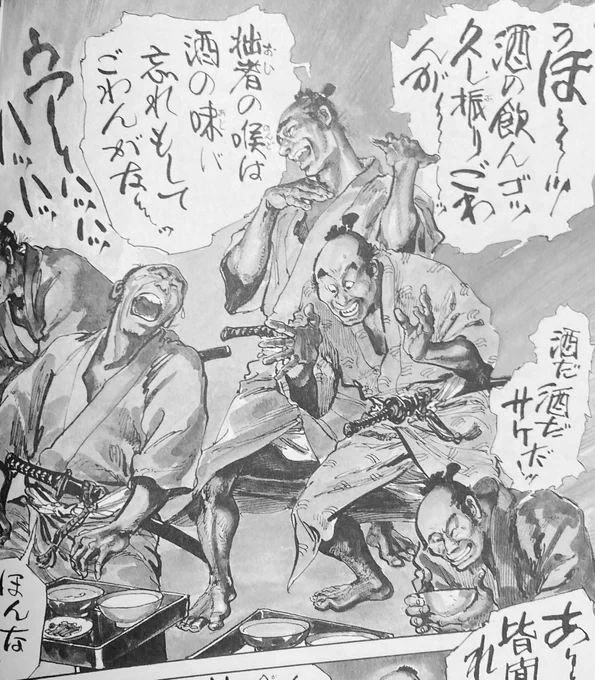 うほ〜〜ッ
酒の飲んゴッ
久し振りごわ
んが〜〜ッ
拙者の喉は
酒の味バ
忘れもして
ごわんがな〜ッ
ウワーハッハッ
ハッハッ
酒だ酒だ
サケだッ
ほんな
皆
れ